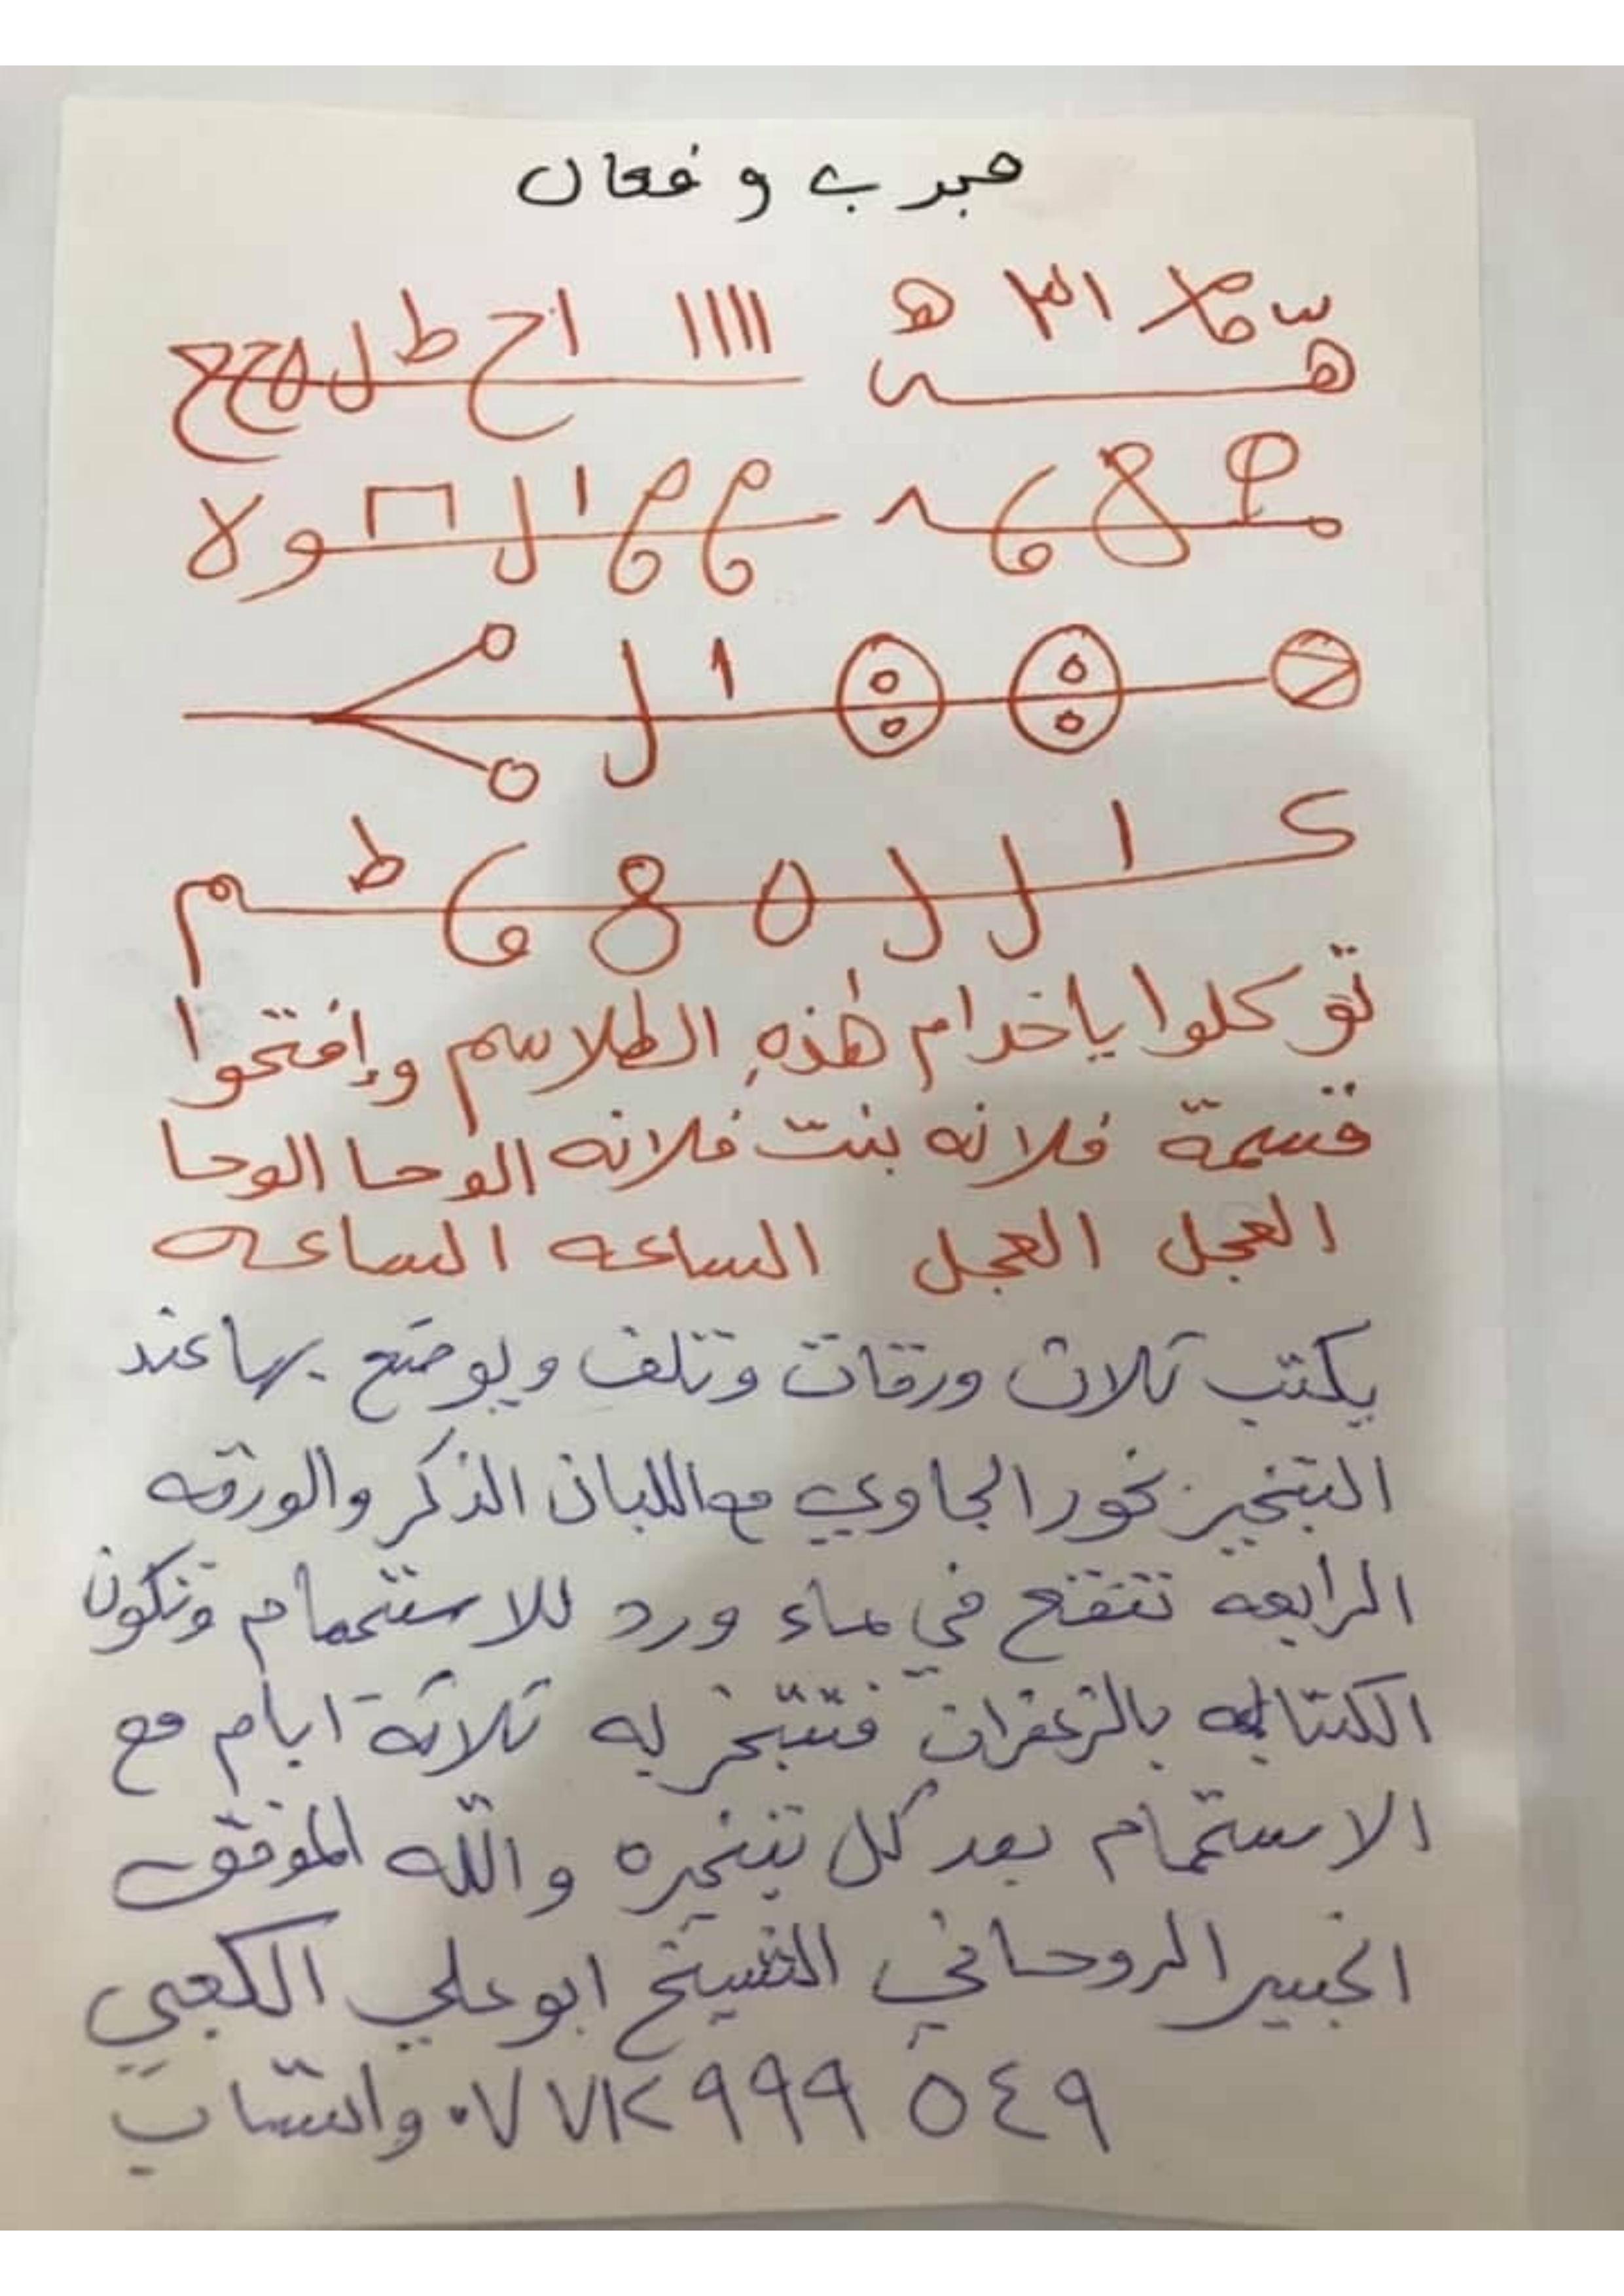 مجرب وفعال
١٣ ه
ااااا ا ح ط ل ه ح ح
ا ل و لا
ا ل
ك ا ل ل ه 8 ط م
توكلوا ياخدام هٰذهِ الطلاسم وإفتحوا
قسمة فلانه بنت فلانه الوحا الوحا
العجل العجل الساعه الساعه
يكتب ثلاث ورقات وتلف ويوضع بها عند
التبخير بخور الجاوي مع اللبان الذكر والورقه
الرابعه تنقع في ماء ورد للاستحمام وتكون
الكتابه بالزعفران فتتبخر به ثلاثة ايام مع
الاستحمام بعد كل تبخيره والله الموفق
الخبير الروحاني الشيخ ابو علي الكعبي
٠٧٧١٢٩٩٩٥٤٩ واتساب